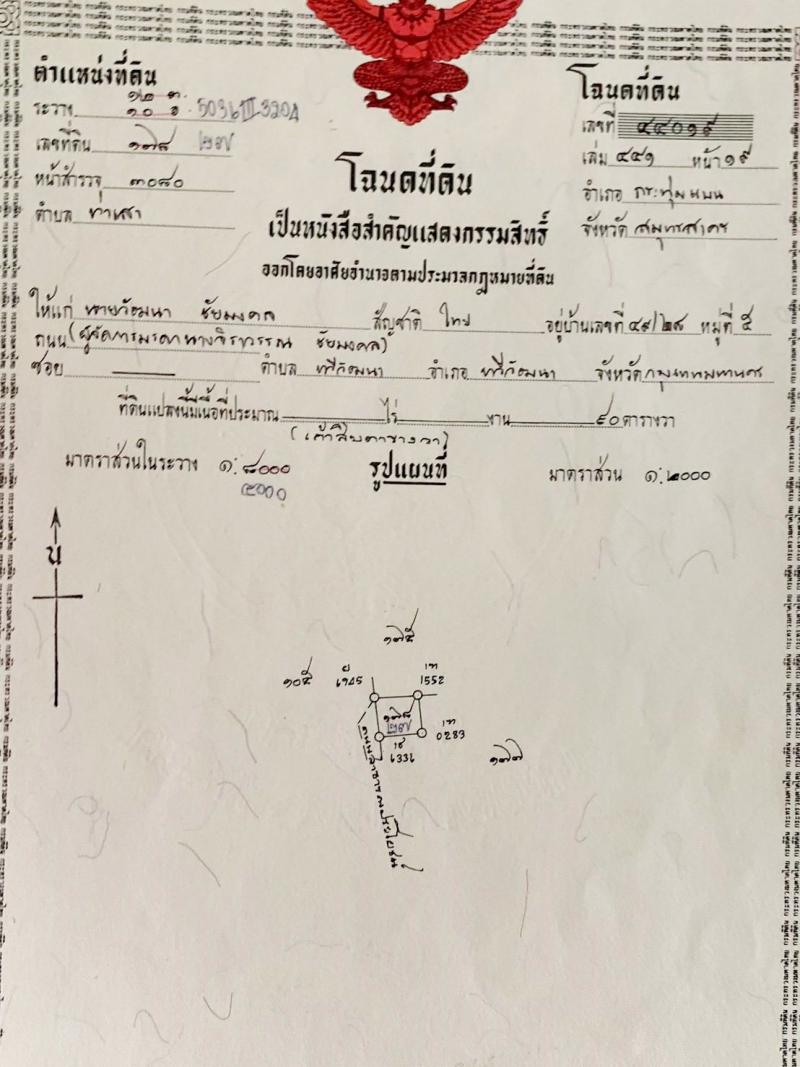 ตำแหน่งที่ดิน
ระวาง ๑๒ ต ๑๐ อ 5036 III 3204
เลขที่ดิน ๑๗๘ ๒๗
หน้าสำรวจ ๓๐๘๐
ตำบล ท่าเสา
โฉนดที่ดิน
เลขที่ ๔๔๐๑๙
เล่ม ๔๔๑ หน้า ๑๙
อำเภอ กระทุ่มแบน
จังหวัด สมุทรสาคร
โฉนดที่ดิน
เป็นหนังสือสำคัญแสดงกรรมสิทธิ์
ออกโดยอาศัยอำนาจตามประมวลกฎหมายที่ดิน
ให้แก่ นายวัฒนา ชัยมงคล สัญชาติ ไทย อยู่บ้านเลขที่ ๔๙/๒๘ หมู่ที่ ๕
ถนน (ผู้จัดการมรดกนางจิราวรรณ ชัยมงคล)
ซอย ตำบล ทวีวัฒนา อำเภอ ทวีวัฒนา จังหวัด กรุงเทพมหานคร
ที่ดินแปลงนี้มีเนื้อที่ประมาณ ไร่ งาน ๙๐ ตารางวา
(เก้าสิบตารางวา)
มาตราส่วนในระวาง ๑:๘๐๐๐ รูปแผนที่ มาตราส่วน ๑:๒๐๐๐
๔๐๐๐
น
๑๗๕
๑๐๕ 6945 1552
๑๗๘
๒๗ 0283
6336 ๑๗๗
ถนนสาธารณประโยชน์